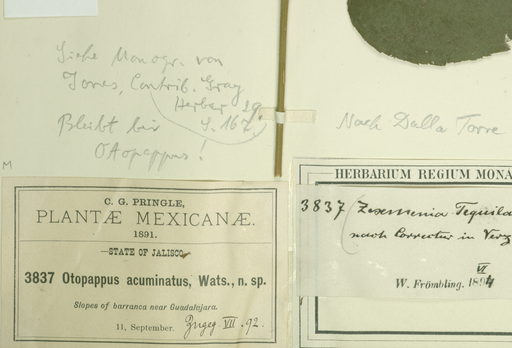 Siehe Monogr. von
Jones, Contrib. Gray
Herbar 29.
Bleibt bei S. 167.
Otopappus!
Nach Dalla Torre
M
C. G. PRINGLE,
PLANTÆ MEXICANÆ.
1891.
STATE OF JALISCO
3837 Otopappus acuminatus, Wats., n. sp.
Slopes of barranca near Guadalajara.
11, September. Zugeg. VII. 92.
HERBARIUM REGIUM MONA
3837 Zexmenia Tequila
nach Correctur in Verz
VI
W. Frömbling. 1894